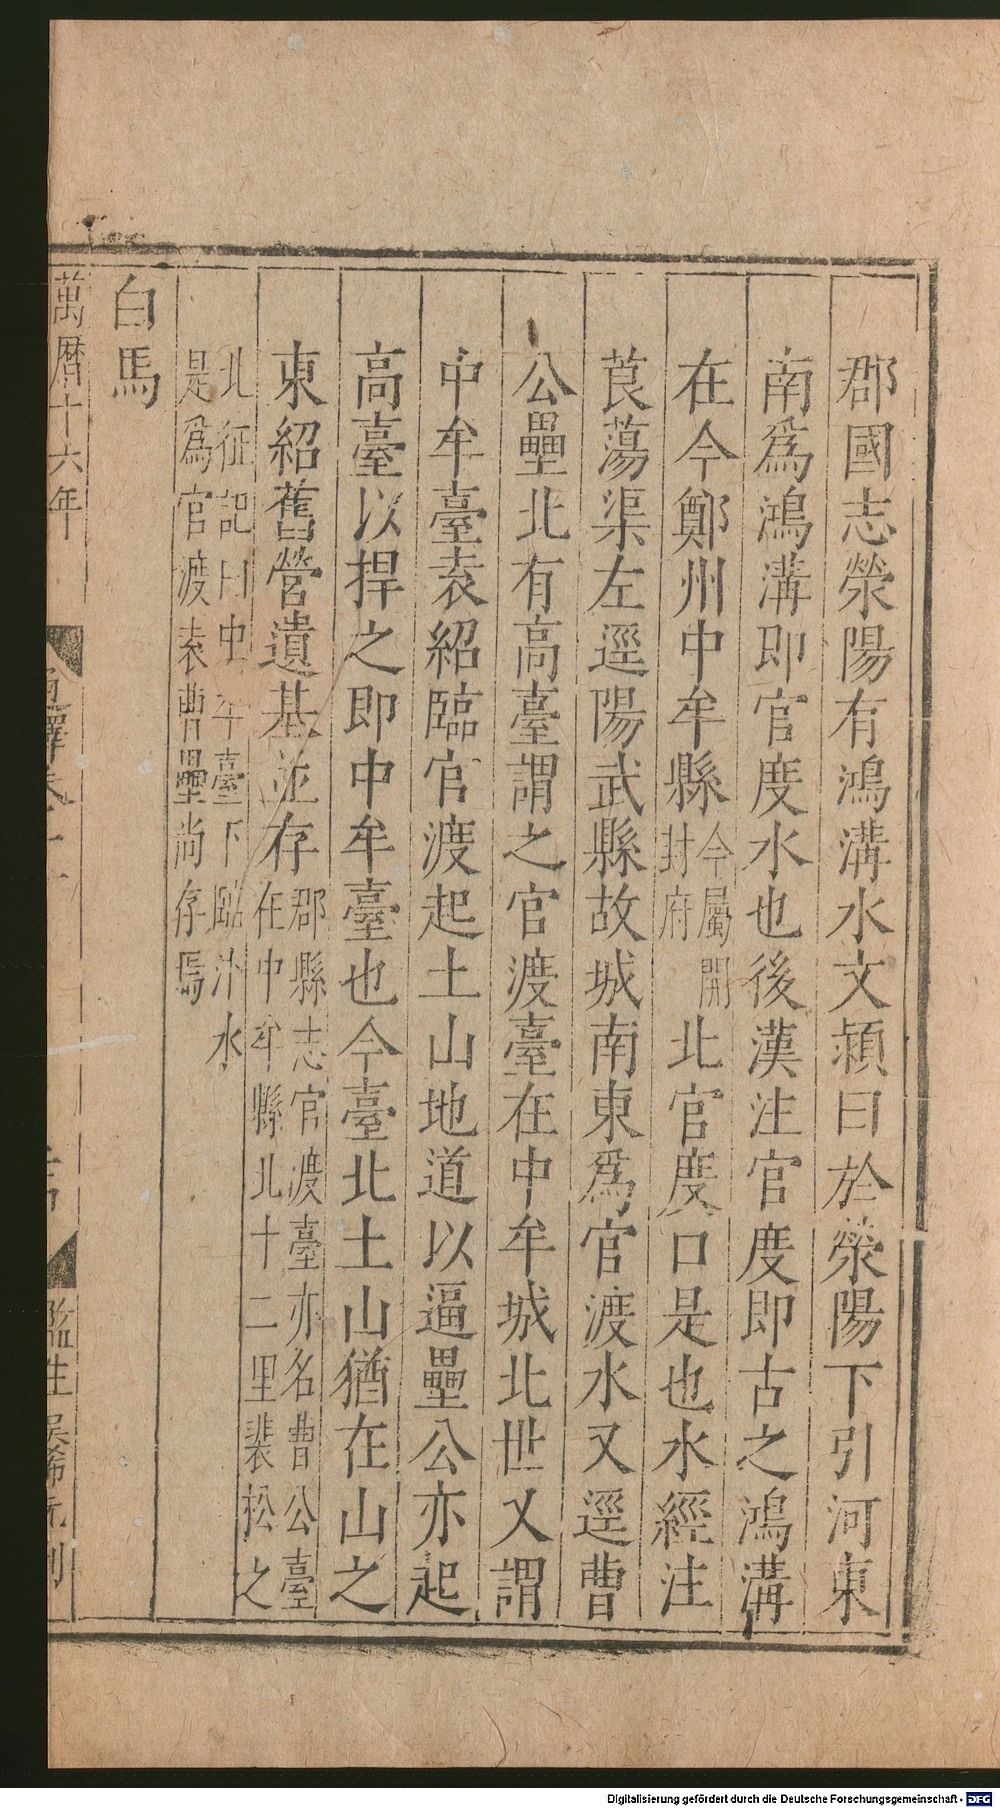 郡國志滎陽有鴻溝水文穎曰於滎陽下引河東
南爲鴻溝即官度水也後漢注官度即古之鴻溝
在今鄭州中牟縣今屬開封府北官度口是也水經注
莨蕩渠左逕陽武縣故城南東爲官渡水又逕曹
公壘北有高臺謂之官渡臺在中牟城北世又謂
中牟臺袁紹臨官渡起土山地道以逼壘公亦起
高臺以捍之即中牟臺也今臺北土山猶在山之
東紹舊營遺基並存郡縣志官渡臺亦名曹公臺在中牟縣北十二里裴松之
北征記曰中牟臺下臨汴水
是爲官渡袁曹壘尚存焉
白馬
萬曆十六年
通釋卷十一
監生吳希元刊
Digitalisierung gefördert durch die Deutsche Forschungsgemeinschaft - DFG